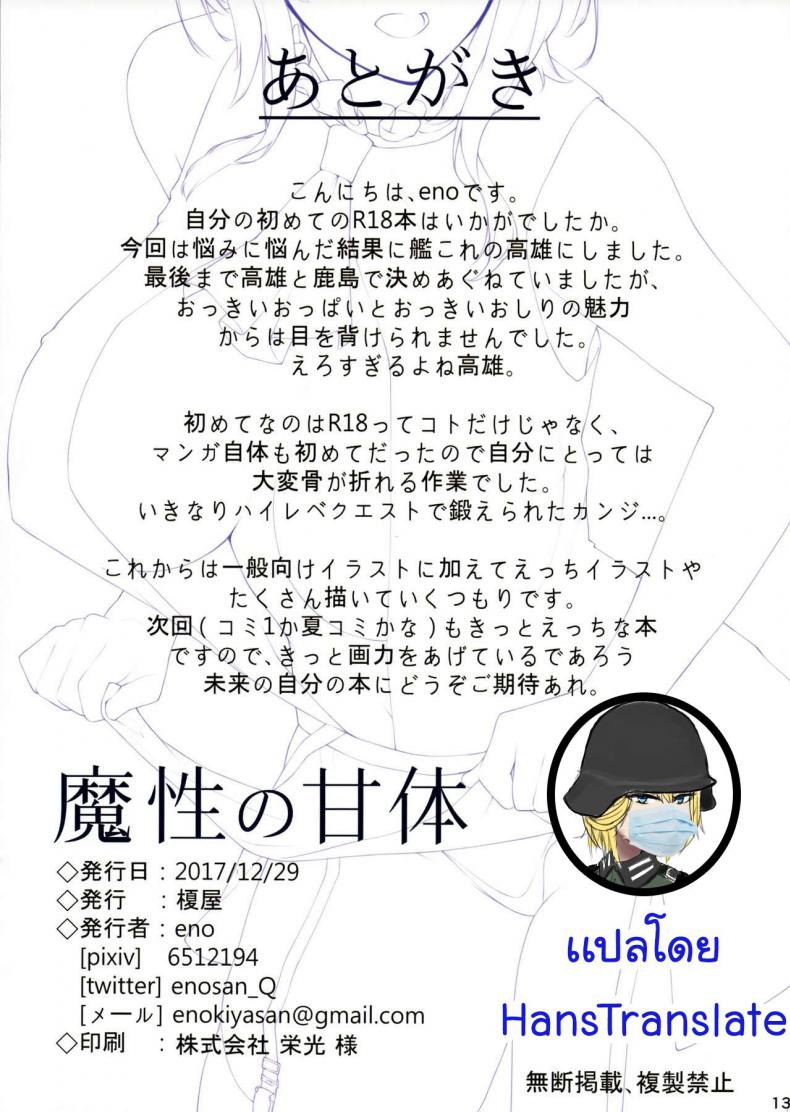 あとがき
こんにちは、enoです。
自分の初めてのR18本はいかがでしたか。
今回は悩みに悩んだ結果に艦これの高雄にしました。
最後まで高雄と鹿島で決めあぐねていましたが、
おっきいおっぱいとおっきいおしりの魅力
からは目を背けられませんでした。
えろすぎるよね高雄。
初めてなのはR18ってコトだけじゃなく、
マンガ自体も初めてだったので自分にとっては
大変骨が折れる作業でした。
いきなりハイレベクエストで鍛えられたカンジ...。
これからは一般向けイラストに加えてえっちイラストや
たくさん描いていくつもりです。
次回(コミ1か夏コミかな)もきっとえっちな本
ですので、きっと画力をあげているであろう
未来の自分の本にどうぞご期待あれ。
魔性の甘体
◇発行日：2017/12/29
◇発行　：榎屋
◇発行者：eno
[pixiv] 6512194
[twitter] enosan_Q
[メール] enokiyasan@gmail.com
◇印刷　：株式会社 栄光 様
แปลโดย
HansTranslate
無断掲載、複製禁止
13